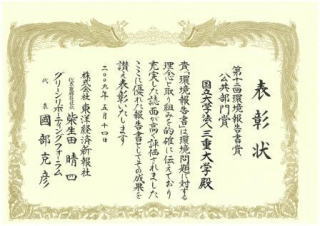 表彰状
第十二回環境報告書賞
公共部門賞
国立大学法人三重大学殿
貴環境報告書は環境問題に対する
理念と取り組みを的確に伝えており
充実した誌面が高く評価されました
ここに優れた報告書としてその成果を
讃え表彰いたします
二〇〇九年五月十四日
株式会社東洋経済新報社
代表取締役社長 柴生田晴四
グリーンリポーティングフォーラム
代表 國部克彦